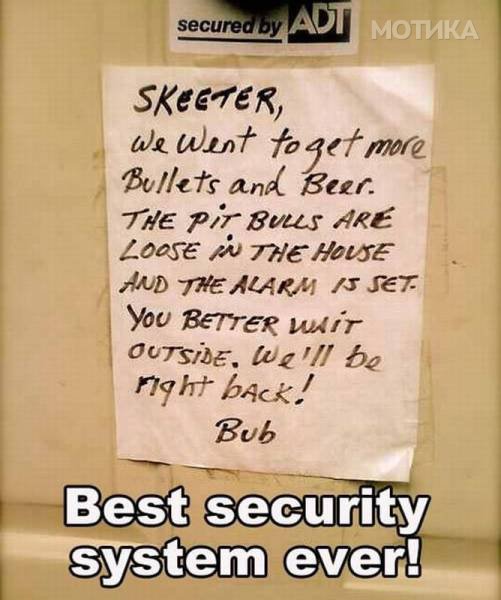 secured by ADT
МОТИКА
SKEETER,
We Went to get more
Bullets and Beer.
THE PIT BULLS ARE
LOOSE IN THE HOUSE
AND THE ALARM IS SET.
YOU BETTER WAIT
OUTSIDE. We'll be
right bACK!
Bub
Best security
system ever!